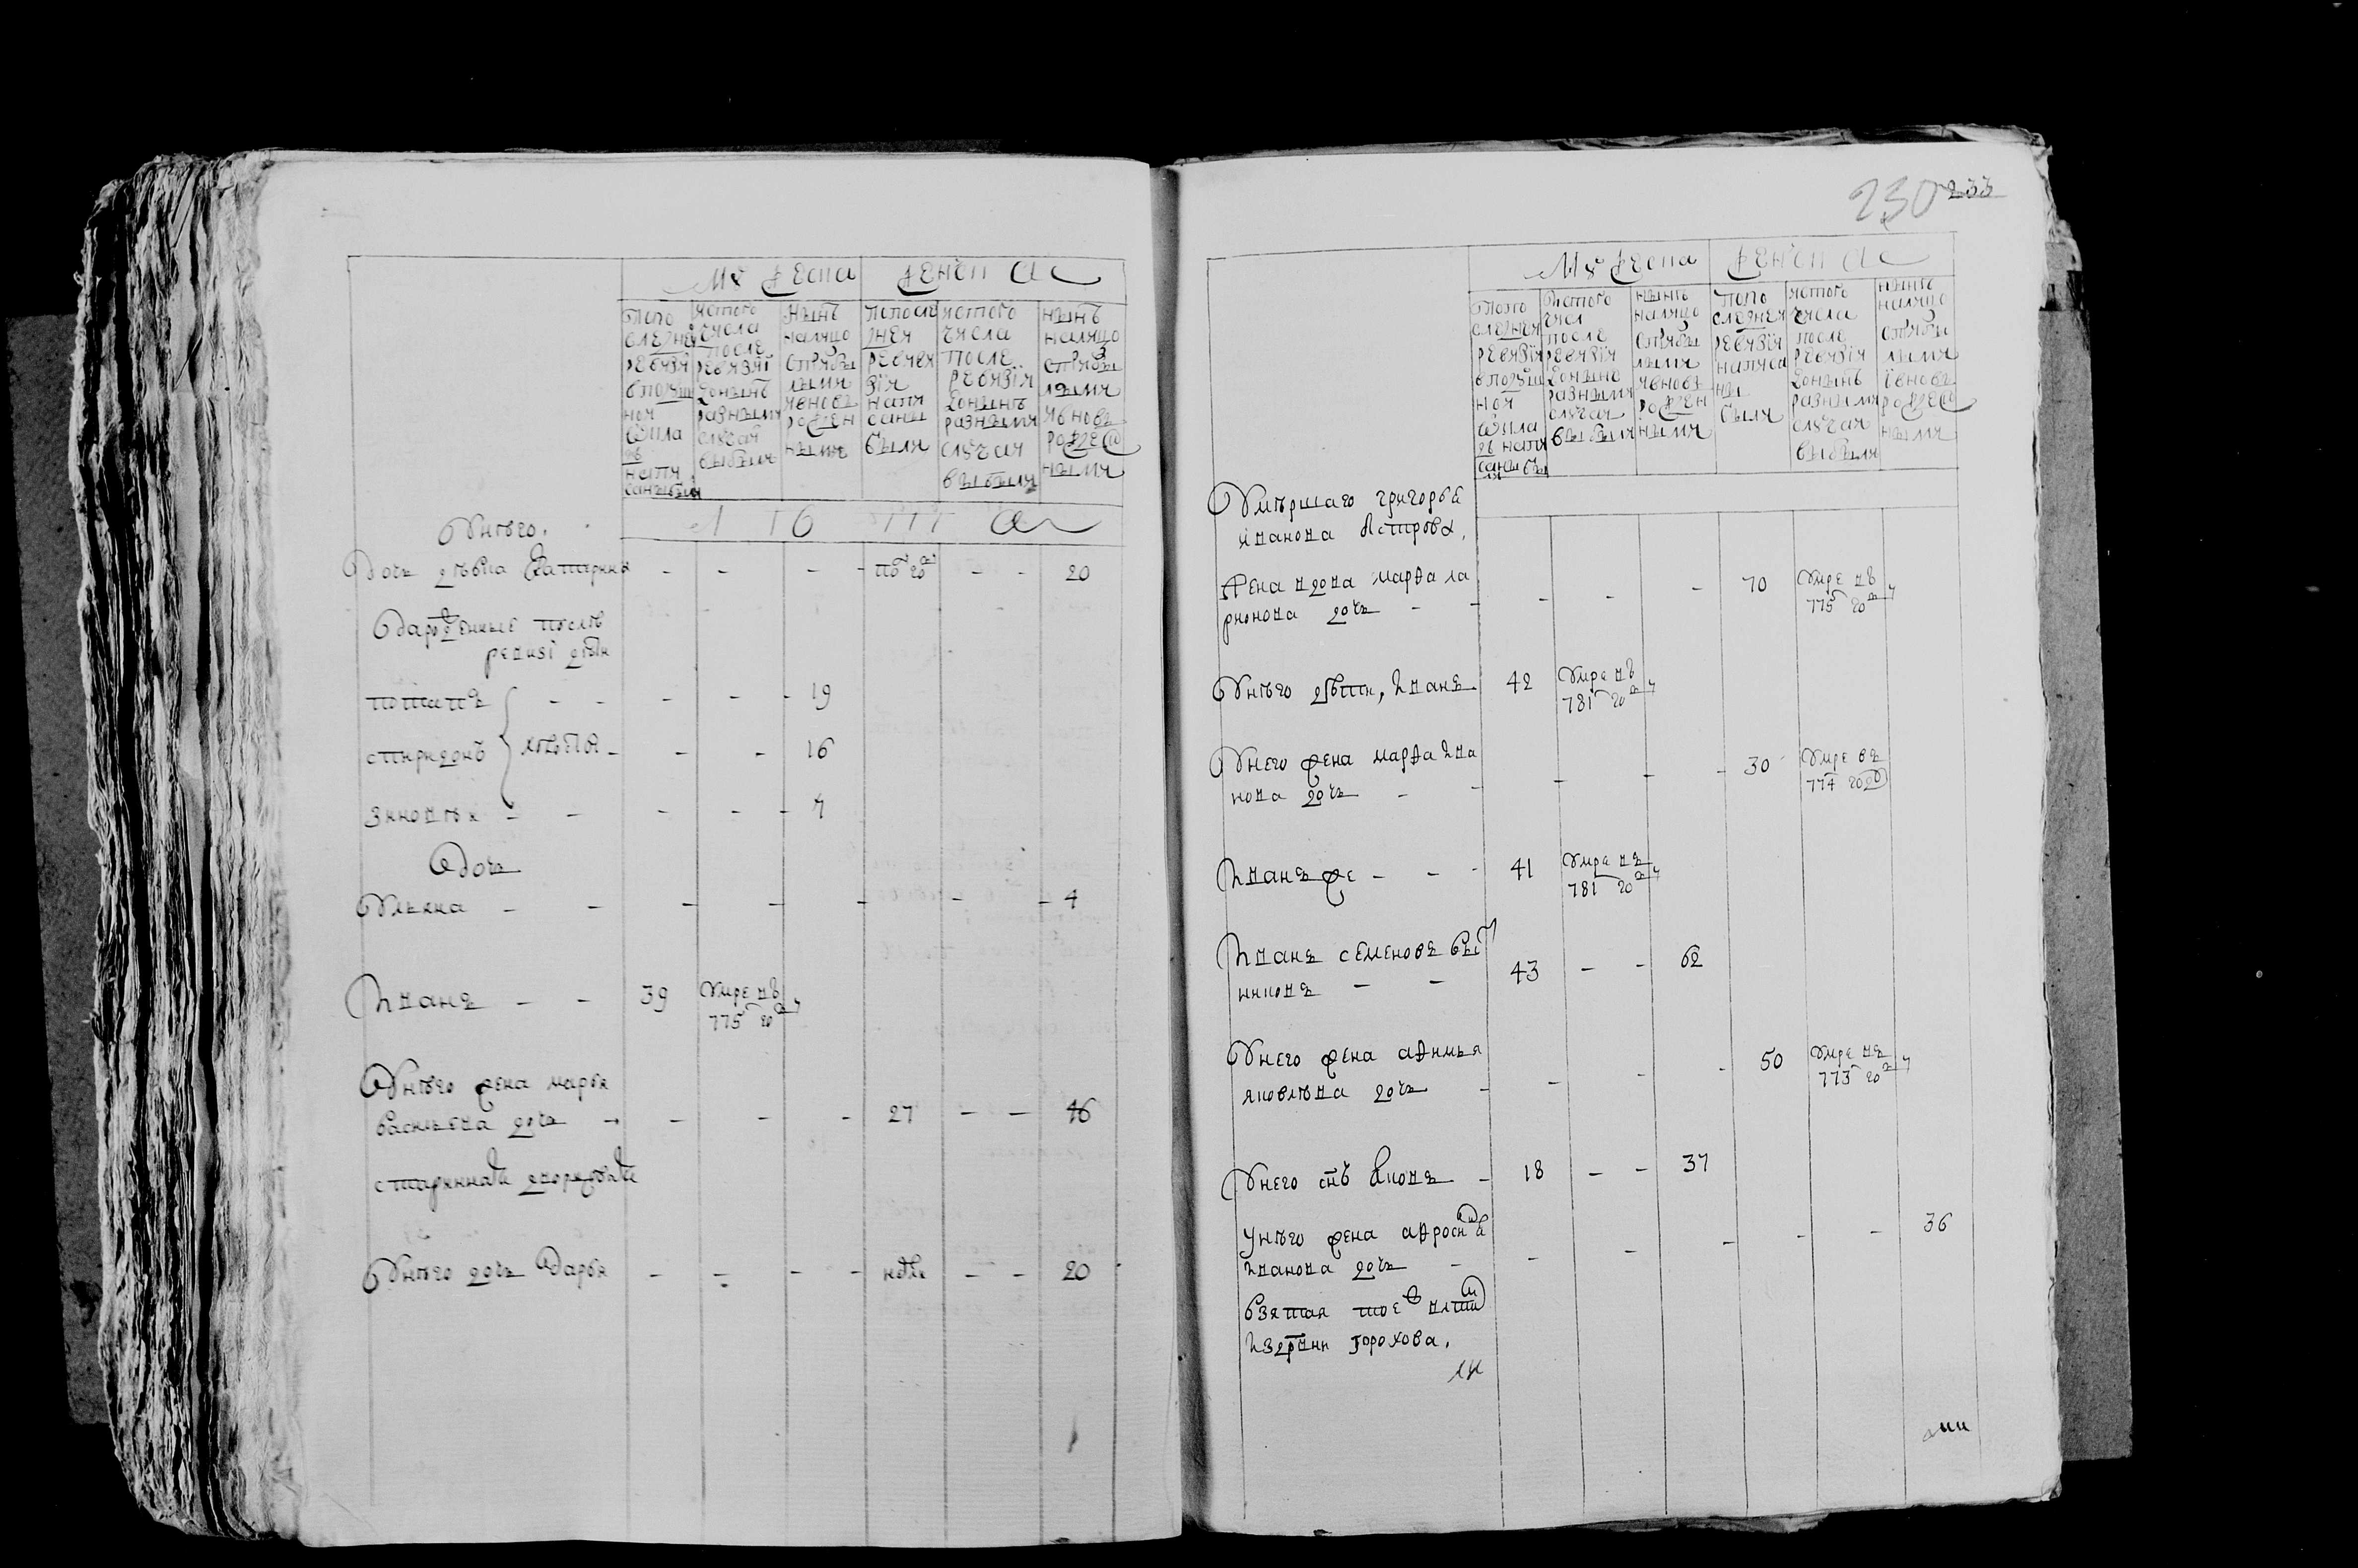 Мужеска
женска
По по
следней
ревизiи
в подуш
ной
окла
дъ
напи
саны были
ис того
числа
после
ревизiи
до нынъ
разными
случаи
выбыли
нынъ
на лицо
с прибы
лыми
и вновь
рожден
ными
По послъ
дней
реви
зiи
напи
саны
были
ис того
числа
после
ревизiи
до нынъ
разными
случаи
выбыли
нынъ
на лицо
с прибы
лыми
и вновь
рожде
ными
лъта
У нъго
дочь дъвка Катерина - - - - по 20 - - 20
Да рожденные послъ
ревизi дъти
потапъ - - - - - 19
спиридонъ холостыя - - - 16
зиновъи - - - - - 7
Дочь
Ульяна - - - - - - - 4
Иванъ - - 39 Умре въ
775 году
У нъго жена марья
василъева дочь - - - - 27 - - 46
старинная дворовая
У нъго дочь Дарья - - - - - - 20
230 233
Мужеска
женска
По по
следней
ревизiи
в подуш
ной
окла
дъ напи
саны бы
ли
Ис того
числ
после
ревизiи
до нынъ
разными
случаи
выбыли
нынъ
на лицо
с прибы
лыми
и вновь
рожден
ными
По по
следней
ревизiи
написа
ны
были
ис того
числа
после
ревизiи
до нынъ
разными
случаи
выбыли
нынъ
на лицо
с прибы
лыми
i вновь
рожде
ными
Умършаго григорья
иванова Петрова,
Жена вдова марфа ла
рионова дочь - - - - - 70 Умре въ
775 году
У нъго дъти, Иванъ 42 Умре въ
781 году
У него жена марфа ива
нова дочь - - - - - 30 Умре въ
774 году
Иванъ же - - - 41 Умре въ
781 году
Иванъ семеновъ
43 - - 62
У него жена афимья
яковлъва дочь - - - - 50 Умре въ
773 году
У него сынъ Яковъ - 18 - - 37
У нъго жена афросинья
иванова дочь - - - - - - 36
взятая тое
Горохова,